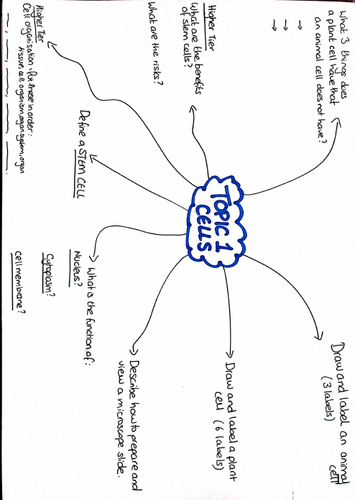 What 3 things does
a plant cell have that
an animal cell does not have?
→
→
→
Draw and label an animal
cell
(3 labels)
Draw and label a plant
cell (6 labels)
Describe how to prepare and
view a microscope slide.
TOPIC 1
CELLS
Higher Tier
What are the benefits
of stem cells?
What are the risks?
Define a STEM CELL
What is the function of:
Nucleus?
Cytoplasm?
Cell membrane?
Higher Tier
Cell organisation: Put these in order:
organism, organ system, organ